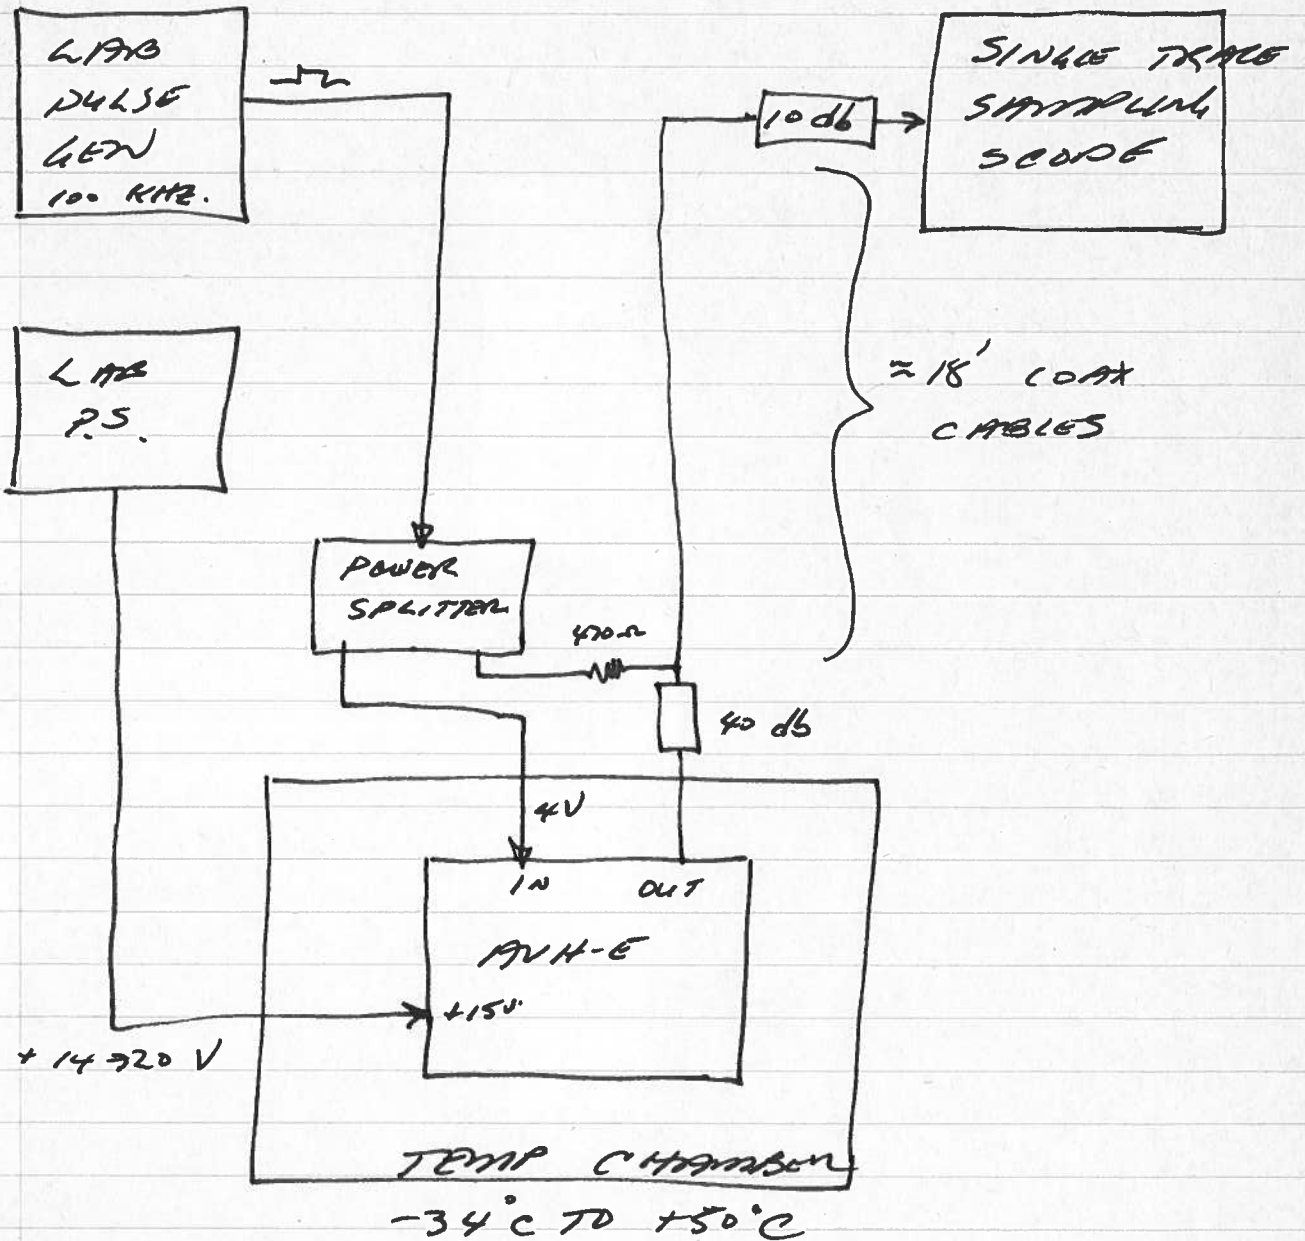 LAB
PULSE
GEN
100 KHZ.
SINGLE TRACE
SAMPLING
SCOPE
10 db
LAB
P.S.
≈ 18' COAX
CABLES
POWER
SPLITTER
470Ω
40 db
4V
IN OUT
AVH-E
+15V
+ 14→20 V
TEMP CHAMBER
-34°C TO +50°C